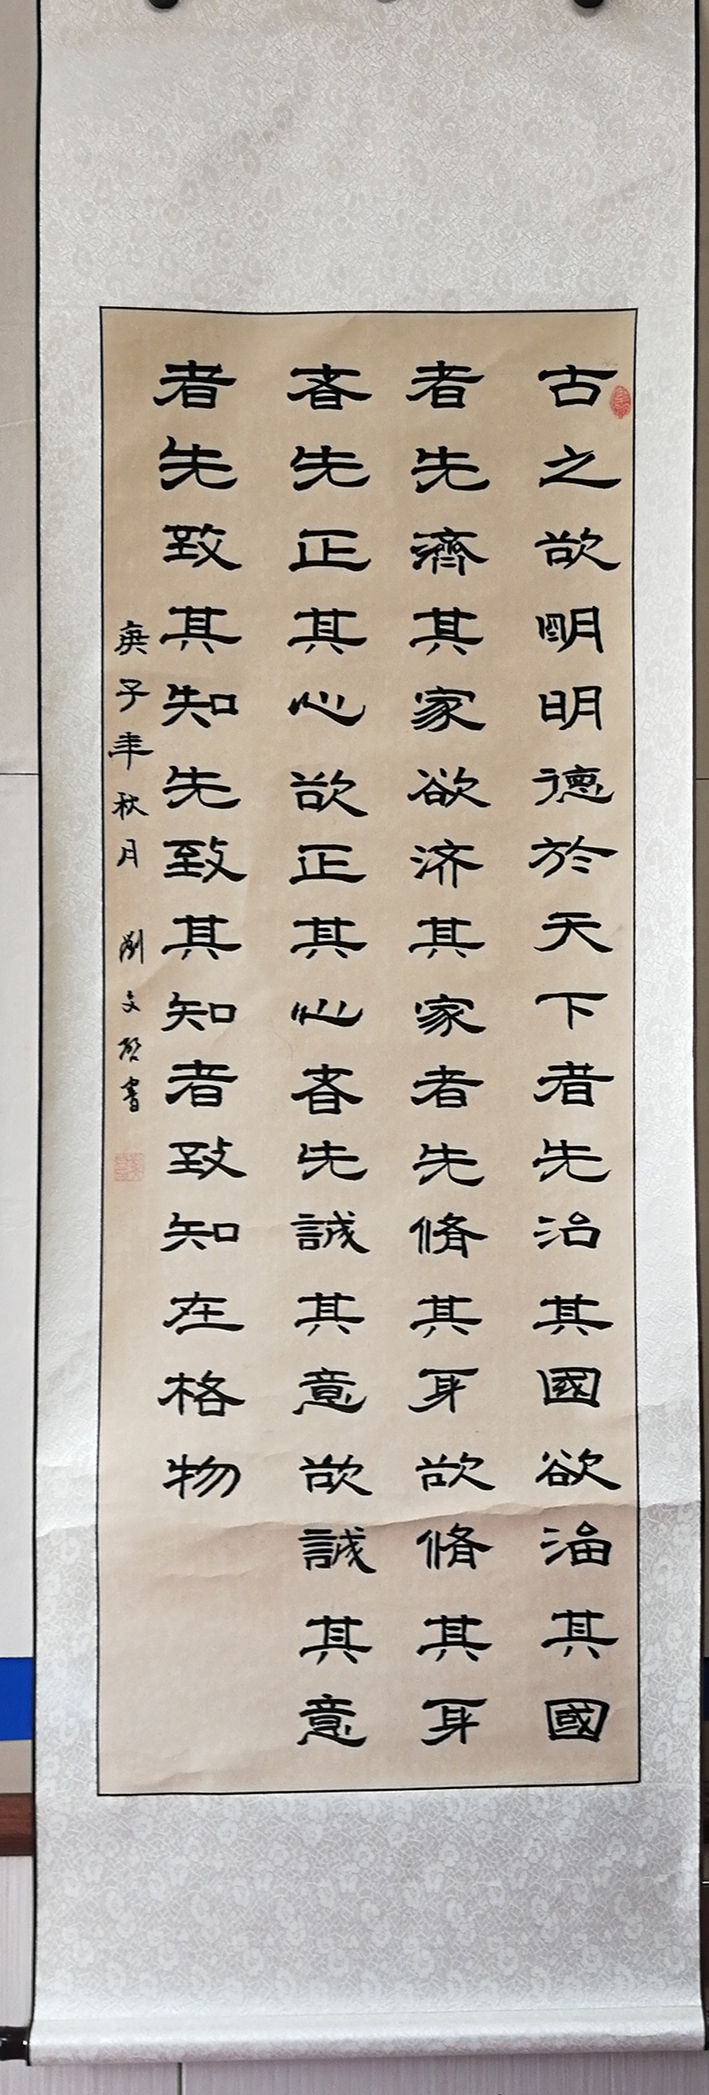 古之欲明明德於天下者先治其國欲治其國
者先濟其家欲济其家者先脩其身欲脩其身
者先正其心欲正其心者先誠其意欲誠其意
者先致其知先致其知者致知在格物
庚子年秋月 劉文啟書